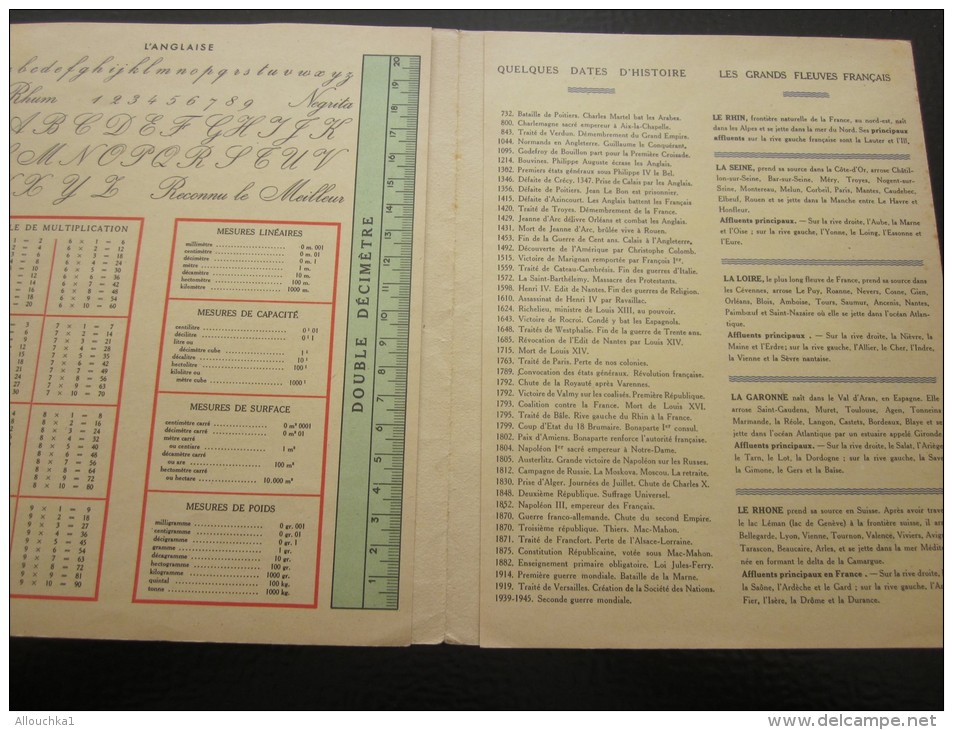 L'ANGLAISE
abcdefghijklmnopqrstuvwxyz
Rhum 1 2 3 4 5 6 7 8 9 Negrita
A B C D E F G H I J K
L M N O P Q R S T U V
X Y Z Reconnu le Meilleur
LE DE MULTIPLICATION
1 — 2 6 × 1 — 6
2 — 4 6 × 2 — 12
3 — 6 6 × 3 — 18
4 — 8 6 × 4 — 24
5 — 10 6 × 5 — 30
6 — 12 6 × 6 — 36
7 — 14 6 × 7 — 42
8 — 16 6 × 8 — 48
9 — 18 6 × 9 — 54
10 — 20 6 × 10 — 60
3 7 × 1 — 7
6 7 × 2 — 14
9 7 × 3 — 21
12 7 × 4 — 28
15 7 × 5 — 35
18 7 × 6 — 42
21 7 × 7 — 49
24 7 × 8 — 56
27 7 × 9 — 63
30 7 × 10 — 70
4 8 × 1 — 8
8 8 × 2 — 16
12 8 × 3 — 24
16 8 × 4 — 32
20 8 × 5 — 40
24 8 × 6 — 48
28 8 × 7 — 56
32 8 × 8 — 64
36 8 × 9 — 72
40 8 × 10 — 80
5 9 × 1 — 9
10 9 × 2 — 18
15 9 × 3 — 27
20 9 × 4 — 36
25 9 × 5 — 45
30 9 × 6 — 54
35 9 × 7 — 63
40 9 × 8 — 72
45 9 × 9 — 81
50 9 × 10 — 90
MESURES LINÉAIRES
millimètre 0 m. 001
centimètre 0 m. 01
décimètre 0 m. 1
mètre 1 m.
décamètre 10 m.
hectomètre 100 m.
kilomètre 1000 m.
MESURES DE CAPACITÉ
centilitre 0 l 01
décilitre 0 l 1
litre ou
décimètre cube 1 l
décalitre 10 l
hectolitre 100 l
kilolitre ou
mètre cube 1000 l
MESURES DE SURFACE
centimètre carré 0 m² 0001
décimètre carré 0 m² 01
mètre carré
ou centiare 1 m²
décamètre carré
ou are 100 m²
hectomètre carré
ou hectare 10.000 m²
MESURES DE POIDS
milligramme 0 gr. 001
centigramme 0 gr. 01
décigramme 0 gr. 1
gramme 1 gr.
décagramme 10 gr.
hectogramme 100 gr.
kilogramme 1000 gr.
quintal 100 kg.
tonne 1000 kg.
DOUBLE DÉCIMÈTRE
1 2 3 4 5 6 7 8 9 10 11 12 13 14 15 16 17 18 19 20
QUELQUES DATES D'HISTOIRE
732. Bataille de Poitiers. Charles Martel bat les Arabes.
800. Charlemagne sacré empereur à Aix-la-Chapelle.
843. Traité de Verdun. Démembrement du Grand Empire.
1044. Normands en Angleterre. Guillaume le Conquérant.
1095. Godefroy de Bouillon part pour la Première Croisade.
1214. Bouvines. Philippe Auguste écrase les Anglais.
1302. Premiers états généraux sous Philippe IV le Bel.
1346. Défaite de Crécy. 1347. Prise de Calais par les Anglais.
1356. Défaite de Poitiers. Jean Le Bon est prisonnier.
1415. Défaite d'Azincourt. Les Anglais battent les Français
1420. Traité de Troyes. Démembrement de la France.
1429. Jeanne d'Arc délivre Orléans et combat les Anglais.
1431. Mort de Jeanne d'Arc, brûlée vive à Rouen.
1453. Fin de la Guerre de Cent ans. Calais à l'Angleterre.
1492. Découverte de l'Amérique par Christophe Colomb.
1515. Victoire de Marignan remportée par François Ier.
1559. Traité de Catrau-Cambrésis. Fin des guerres d'Italie.
1572. La Saint-Barthélemy. Massacre des Protestants.
1598. Henri IV. Edit de Nantes. Fin des guerres de Religion.
1610. Assassinat de Henri IV par Ravaillac.
1624. Richelieu, ministre de Louis XIII, au pouvoir.
1643. Victoire de Rocroi. Condé y bat les Espagnols.
1648. Traités de Westphalie. Fin de la guerre de Trente ans.
1685. Révocation de l'Edit de Nantes par Louis XIV.
1715. Mort de Louis XIV.
1763. Traité de Paris. Perte de nos colonies.
1789. Convocation des états généraux. Révolution française.
1792. Chute de la Royauté après Varennes.
1792. Victoire de Valmy sur les coalisés. Première République.
1793. Coalition contre la France. Mort de Louis XVI.
1795. Traité de Bâle. Rive gauche du Rhin à la France.
1799. Coup d'Etat du 18 Brumaire. Bonaparte 1er consul.
1802. Paix d'Amiens. Bonaparte renforce l'autorité française.
1804. Napoléon Ier sacré empereur à Notre-Dame.
1805. Austerlitz. Grande victoire de Napoléon sur les Russes.
1812. Campagne de Russie. La Moskova. Moscou. La retraite.
1830. Prise d'Alger. Journées de Juillet. Chute de Charles X.
1848. Deuxième République. Suffrage Universel.
1852. Napoléon III, empereur des Français.
1870. Guerre franco-allemande. Chute du second Empire.
1870. Troisième république. Thiers. Mac-Mahon.
1871. Traité de Francfort. Perte de l'Alsace-Lorraine.
1875. Constitution Républicaine, votée sous Mac-Mahon.
1882. Enseignement primaire obligatoire. Loi Jules-Ferry.
1914. Première guerre mondiale. Bataille de la Marne.
1919. Traité de Versailles. Création de la Société des Nations.
1939-1945. Seconde guerre mondiale.
LES GRANDS FLEUVES FRANÇAIS
LE RHIN, frontière naturelle de la France, au nord-est, naît
dans les Alpes et se jette dans la mer du Nord. Ses principaux
affluents sur la rive gauche française sont la Lauter et l'Ill.
LA SEINE, prend sa source dans la Côte-d'Or, arrose Châtil-
lon-sur-Seine, Bar-sur-Seine, Méry, Troyes, Nogent-sur-
Seine, Montereau, Melun, Corbeil, Paris, Mantes, Caudebec,
Elbeuf, Rouen et se jette dans la Manche entre Le Havre et
Honfleur.
Affluents principaux. – Sur la rive droite, l'Aube, la Marne
et l'Oise ; sur la rive gauche, l'Yonne, le Loing, l'Essonne et
l'Eure.
LA LOIRE, le plus long fleuve de France, prend sa source dans
les Cévennes, arrose Le Puy, Roanne, Nevers, Cosne, Gien,
Orléans, Blois, Amboise, Tours, Saumur, Ancenis, Nantes,
Paimbœuf et Saint-Nazaire où elle se jette dans l'océan Atlan-
tique.
Affluents principaux. – Sur la rive droite, la Nièvre, la
Maine et l'Erdre; sur la rive gauche, l'Allier, le Cher, l'Indre,
la Vienne et la Sèvre nantaise.
LA GARONNE naît dans le Val d'Aran, en Espagne. Elle
arrose Saint-Gaudens, Muret, Toulouse, Agen, Tonneins
Marmande, la Réole, Langon, Castets, Bordeaux, Blaye et se
jette dans l'océan Atlantique par un estuaire appelé Gironde
Affluents principaux. – Sur la rive droite, le Salat, l'Ariège
le Tarn, le Lot, la Dordogne ; sur la rive gauche, la Save
la Gimone, le Gers et la Baïse.
LE RHONE prend sa source en Suisse. Après avoir trave
le lac Léman (lac de Genève) à la frontière suisse, il arr
Bellegarde, Lyon, Vienne, Tournon, Valence, Viviers, Avign
Tarascon, Beaucaire, Arles, et se jette dans la mer Médite
née en formant le delta de la Camargue.
Affluents principaux en France. – Sur la rive droite, l
la Saône, l'Ardèche et le Gard ; sur la rive gauche, l'A
Fier, l'Isère, la Drôme et la Durance.
Allouchka1
www.delcampe.net